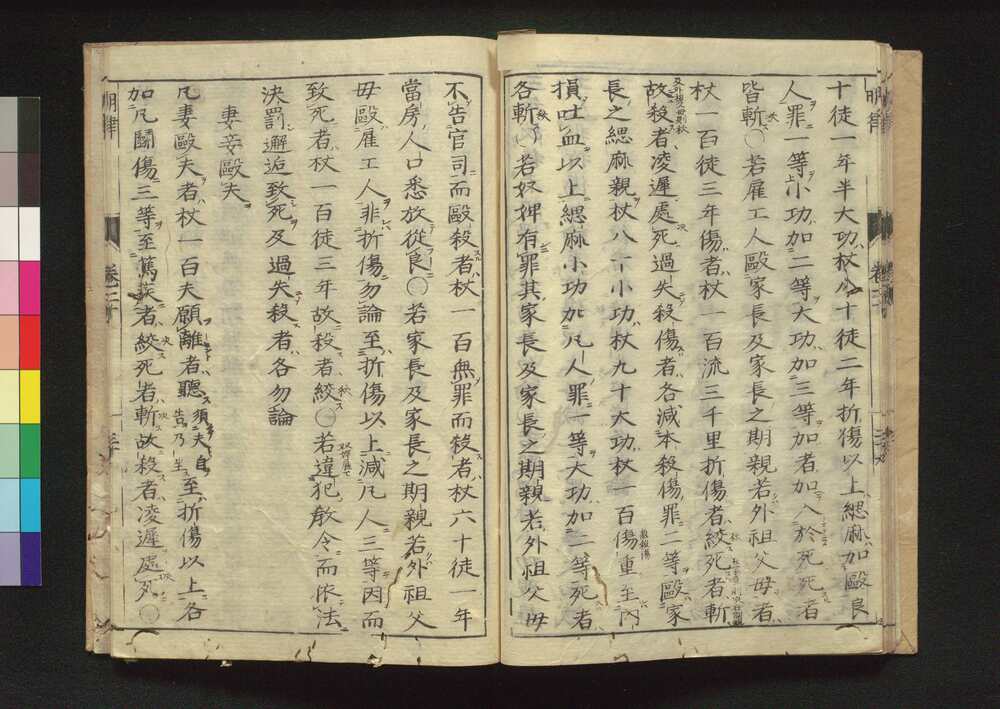 十徒一年半大功杖八十徒二年折傷以上緦麻加毆良
人罪一等小功加二等大功加三等加者加入於死死者
皆斬〇若雇工人毆家長及家長之期親若外祖父母者
杖一百徒三年傷者杖一百流三千里折傷者絞死者斬
故殺者凌遲處死過失殺傷者各減本殺傷罪二等毆家
長之緦麻親杖八十小功杖九十大功杖一百傷重至內
損吐血以上緦麻小功加凡人罪一等大功加二等死者
各斬〇若奴婢有罪其家長及家長之期親若外祖父母
不告官司而毆殺者杖一百無罪而殺者杖六十徒一年
當房人口悉放從良〇若家長及家長之期親若外祖父
母毆雇工人非折傷勿論至折傷以上減凡人三等因而
致死者杖一百徒三年故殺者絞〇若違犯教令而依法
決罰邂逅致死及過失殺者各勿論
妻妾毆夫
凡妻毆夫者杖一百夫願離者聽須夫自告乃坐至折傷以上各
加凡鬪傷三等至篤疾者絞死者斬故殺者凌遲處死〇
明律
卷二十
明律
卷二十